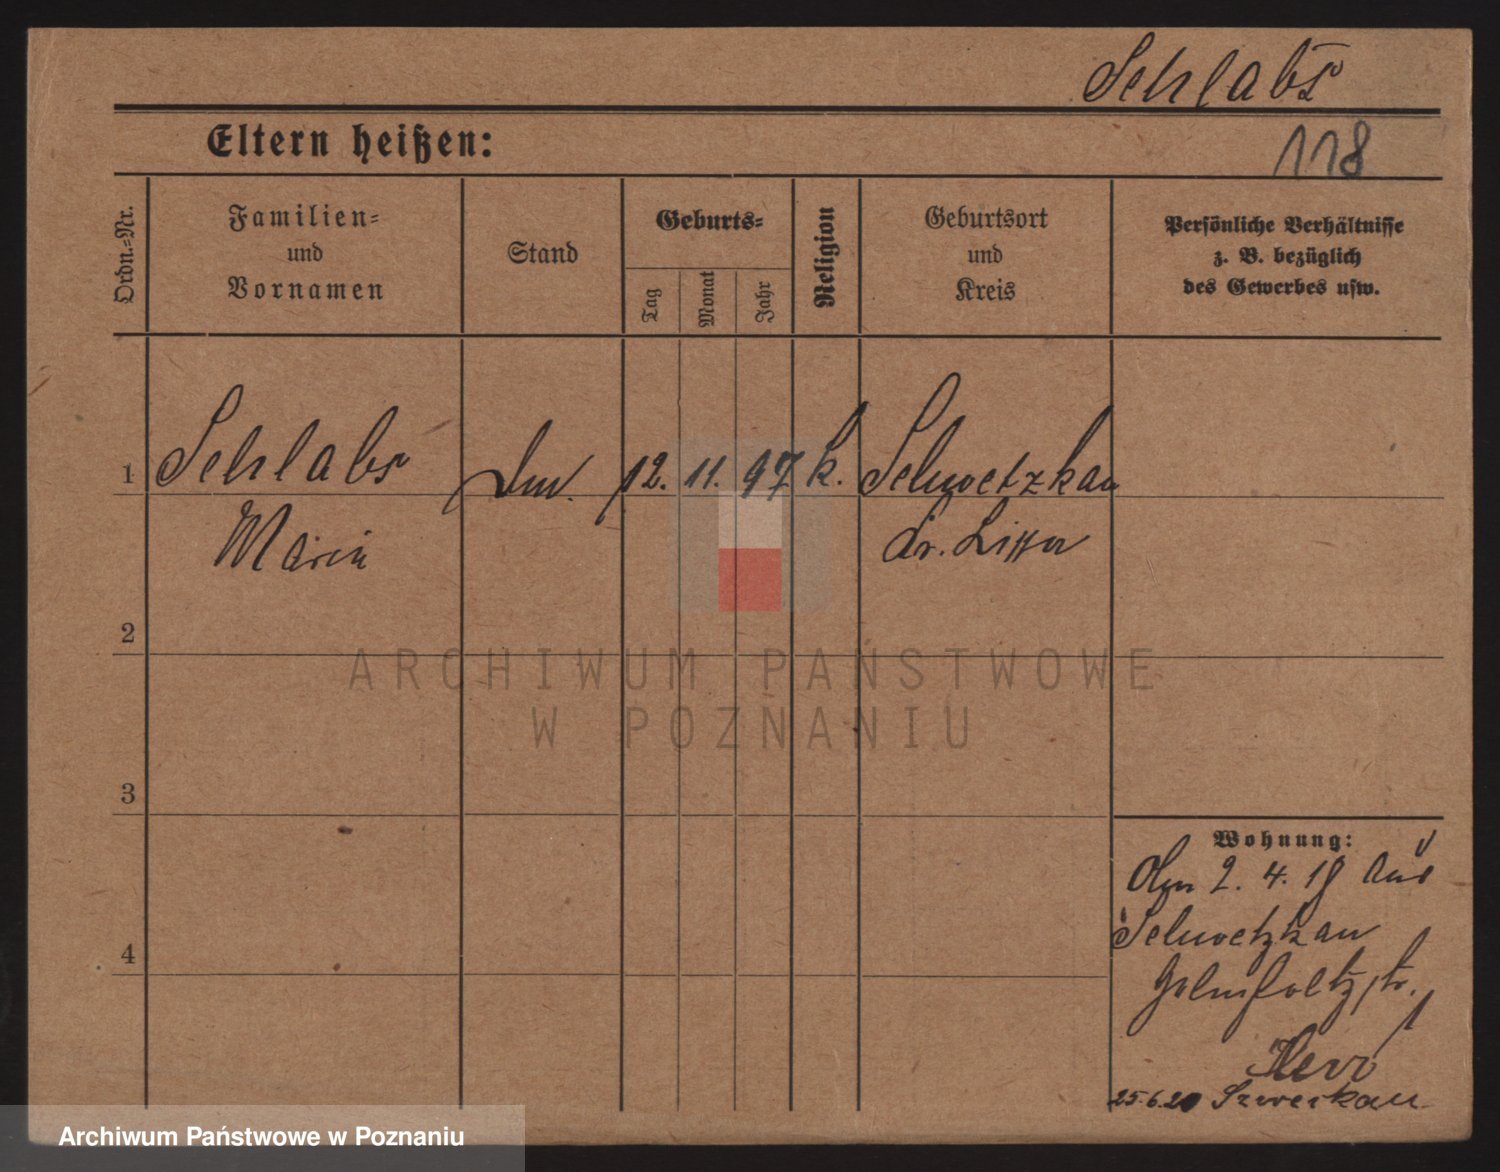 Schlabs
118
Eltern heißen:
Ordn.=Nr.
Familien=
und
Vornamen
Stand
Geburts=
Tag
Monat
Jahr
Religion
Geburtsort
und
Kreis
Persönliche Verhältnisse
z. B. bezüglich
des Gewerbes usw.
1
Schlabs
Marie
12. 11. 97
k.
Schwetzkau
Kr. Lissa
2
3
4
Wohnung:
2. 4. 18 aus
Schwetzkau
Helmholtzstr.
25.6.20
ARCHIWUM PAŃSTWOWE
W POZNANIU
Archiwum Państwowe w Poznaniu